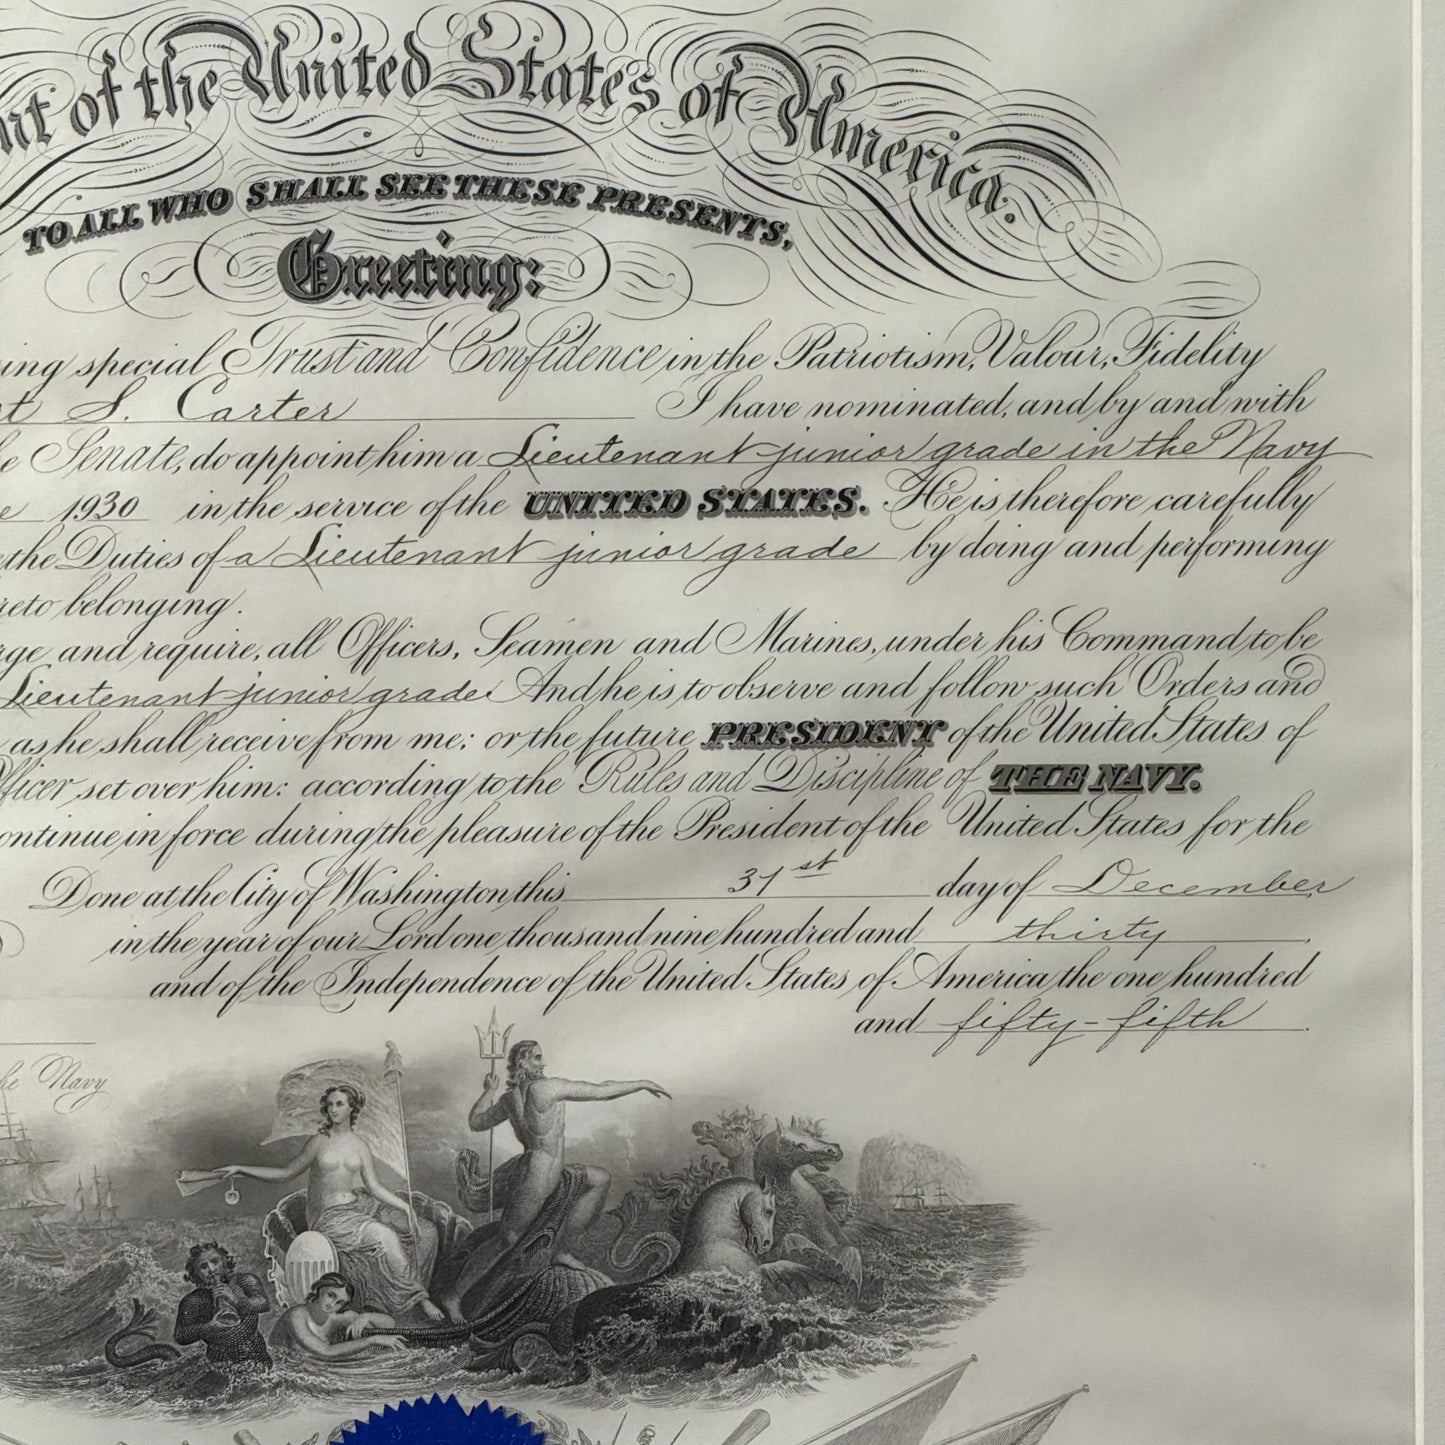 nt of the United States of America.
TO ALL WHO SHALL SEE THESE PRESENTS,
Greeting:
ing special Trust and Confidence in the Patriotism, Valour, Fidelity
t S. Carter I have nominated, and by and with
e Senate, do appoint him a Lieutenant junior grade in the Navy
e 1930 in the service of the UNITED STATES. He is therefore carefully
the Duties of a Lieutenant junior grade by doing and performing
reto belonging.
rge and require, all Officers, Seamen and Marines, under his Command to be
Lieutenant junior grade. And he is to observe and follow such Orders and
as he shall receive from me; or the future PRESIDENT of the United States of
fficer set over him: according to the Rules and Discipline of THE NAVY.
ontinue in force during the pleasure of the President of the United States for the
Done at the City of Washington this 31st day of December
in the year of our Lord one thousand nine hundred and thirty
and of the Independence of the United States of America the one hundred
and fifty-fifth.
he Navy